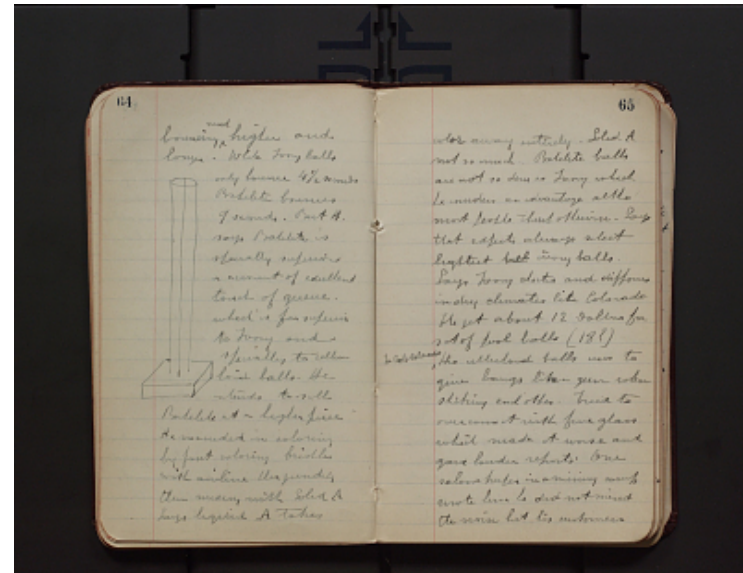 64
bouncing much higher and
longer. While Ivory balls
only bounce 4 1/2 seconds
Bakelite bounces
9 seconds.
says Bakelite is
specially superior
on account of excellent
touch of
which is far superior
to Ivory and
specially to
balls. He
intends to sell
Bakelite at a higher price
He succeeded in coloring
by first coloring
with aniline
then mixing with Solid A
Says liquid A takes
65
color away entirely. Solid A
not so much. Bakelite balls
are not so dense as Ivory which
he considers an advantage altho
most people think otherwise. Says
that experts always select
lightest ivory balls.
Says Ivory and
in dry climates like Colorado
He gets about 12 Dollars for
set of pool balls (18?)
In early
the celluloid balls used to
give bangs like a gun when
striking each other. Tried to
overcome it with fine glass
which made it worse and
gave louder reports. One
saloon keeper in a mining camp
wrote him he did not mind
the noise but his customers